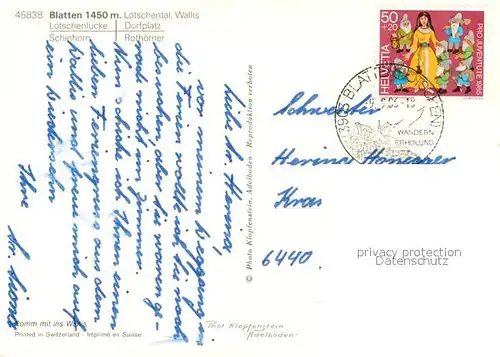 45838 Blatten 1450 m. Lötschental, Wallis
Lötschenlücke Dorfplatz
Schinhorn Rothörner
liebe Sr. Herina,
vor meinem Weggang in
die Ferien wollte ich Sie noch
besuchen aber Sie waren ge-
rade nicht im Zimmer.
Nun schicke ich Ihnen einen
lieben Feriengruss aus dem
Wallis und freue mich auf
ein Wiedersehn
Ihre
Sr.
Komm mit ins Wallis
Printed in Switzerland - Imprimé en Suisse
© Photo Klopfenstein, Adelboden - Reproduktion verboten
Phot Klopfenstein
Adelboden
50
+20
HELVETIA
PRO JUVENTUTE 1985
3903 BLATTEN
WANDERN
ERHOLUNG
Schwester
Herina
6440
privacy protection
Datenschutz